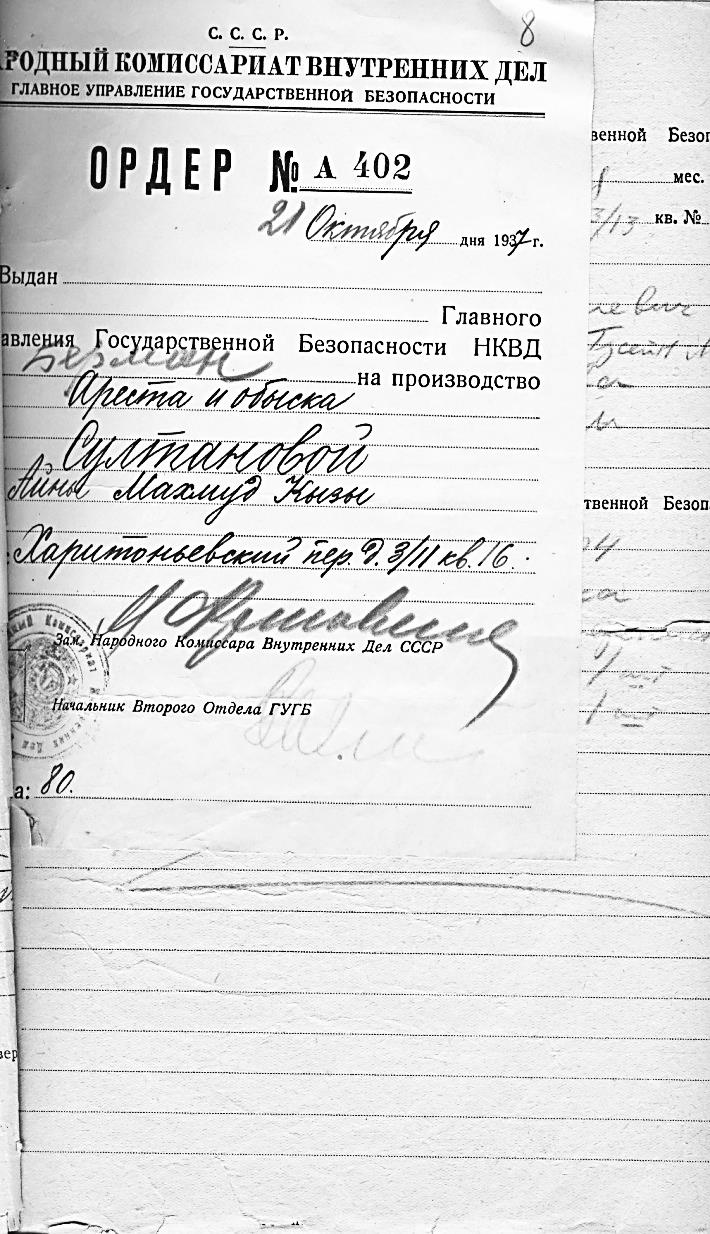 С. С. С. Р.
8
РОДНЫЙ КОМИССАРИАТ ВНУТРЕННИХ ДЕЛ
ГЛАВНОЕ УПРАВЛЕНИЕ ГОСУДАРСТВЕННОЙ БЕЗОПАСНОСТИ
ОРДЕР № А 402
21 Октября дня 1937 г.
Выдан
Главного
авления Государственной Безопасности НКВД
Берман на производство
Ареста и обыска
Султановой
Айны Махмуд Кызы
Харитоньевский пер. д. 3/11 кв. 16.
Зам. Народного Комиссара Внутренних Дел СССР
Начальник Второго Отдела ГУГБ
а: 80.
венной Безоп
мес.
3/13 кв. №
евич
твенной Безоп